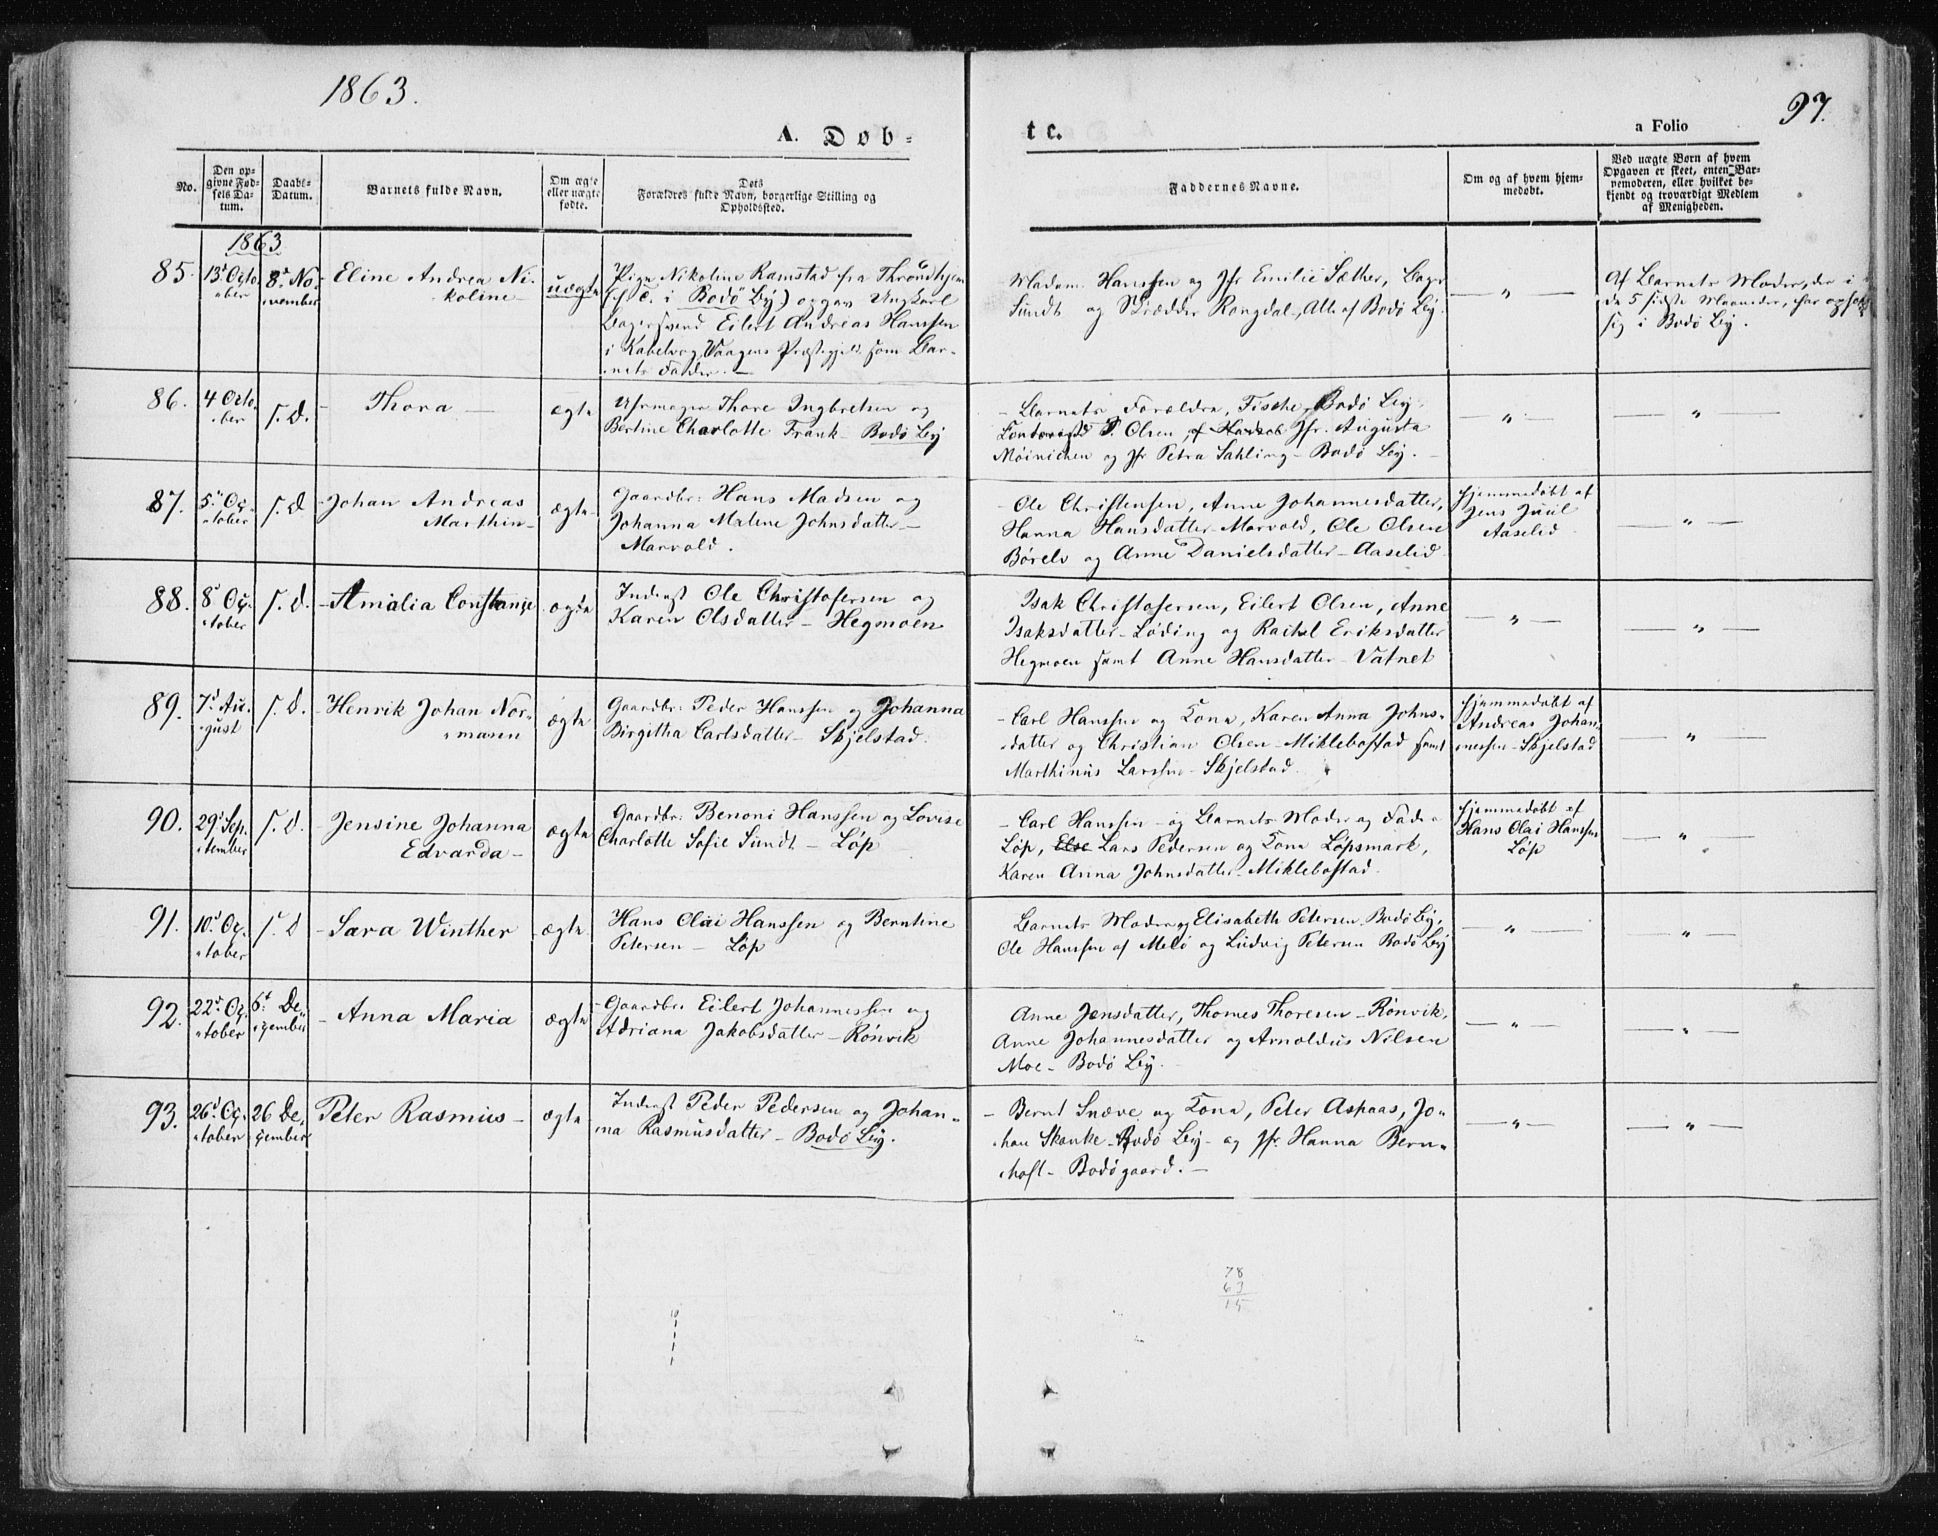 1863.
97.
A. Døb-
te.
a Folio
No.
Den op-
givne Fød-
sels Da-
tum.
Daabs-
Datum.
Barnets fulde Navn.
Om ægte
eller uægte
fødte.
Dets
Forældres fulde Navn, borgerlige Stilling og
Opholdssted.
Faddernes Navne.
Om og af hvem hjem-
medøbt.
Ved uægte Børn af hvem
Opgaven er skeet, enten Bar-
nemoderen, eller hvilket be-
kjendt og troværdigt Medlem
af Menigheden.
1863
85.
13d Octo-
ober
8d No-
vember
Eline Andrea Ni-
koline
uægte
Pige Nikoline Ramstad fra Throndhjem
i Bodø By) opgav Ungkarl
Bagersvend Eilert Andreas Hanssen
i Kabelvog Vaagens Præstegjeld som Bar-
nets Fader.
Madam Hanssen og Jfr Emilie Sæther, Bager
Sundt og Brødder Rongdal, Alle af Bodø By.
— " —
Af Barnets Moder, der i
de 5 sidste Maaneder, har opholdt
sig i Bodø By.
86.
4 Octo-
ber
s. D.
Thora
ægte
Uhrmager Thore Ingbretsen og
Bertine Charlotte Frank - Bodø By
Barnets Forældre, Bodø By
Olsen, Jfr. Augusta
Møinichen og Jfr Petra Sahling - Bodø By.
— " —
— " —
87.
5d Oc-
tober
s. D
Johan Andreas
Marthin
ægte
Gaardbr: Hans Madsen og
Johanna Malene Johnsdatter -
Marvold.
Ole Christensen, Anne Johannesdatter,
Hanna Hansdatter - Marvold, Ole Olsen
Børelv og Anne Danielsdatter - Aaselid
Hjemmedøbt af
Jens Juul
Aaselid
— " —
88.
8d Oc-
tober
s. D.
Amalia Constanse
ægte
Inderst Ole Christofersen og
Karen Olsdatter - Hegmoen
Isak Christofersen, Eilert Olsen, Anne
Isaksdatter - Løding og Rachel Eriksdatter
Hegmoen samt Anne Hansdatter - Vatnet
— " —
— " —
89.
7d Au-
gust
s. D.
Henrik Johan Nor-
mann
ægte
Gaardbr: Peder Hanssen og Johanna
Birgitha Carlsdatter - Skjelstad.
Carl Hanssen og Kona, Karen Anna Johns-
datter og Christian Olsen - Miklebostad samt
Marthinus Larssen - Skjelstad.
Hjemmedøbt af
Andreas Johan-
nessen - Skjelstad
— " —
90.
29d Sep-
tember
s. D.
Jensine Johanna
Edvarda
ægte
Gaardbr: Benoni Hanssen og Lovise
Charlotte Sofie Sundt - Løp
Carl Hanssen - og Barnets Moder og Fader
Løp, Else Lars Pedersen og Kona Løpsmark,
Karen Anna Johnsdatter - Miklebostad.
Hjemmedøbt af
Hans Olai Hanssen
Løp
— " —
91.
10d Oc-
tober
s. D
Sara Winther
ægte
Hans Olai Hanssen og Berntine
Petersen - Løp
Barnets Moder og Elisabeth Petersen Bodø By,
Ole Hanssen af Melø og Ludvig Petersen Bodø By
— " —
— " —
92.
22d Oc-
tober
6t De-
cember
Anna Maria
ægte
Gaardbr: Eilert Johannessen og
Adriana Jakobsdatter - Rønvik
Anne Jensdatter, Thomes Thoresen - Rønvik,
Anne Johannesdatter og Arnoldus Nilsen
Moe - Bodø By.
— " —
— " —
93.
26d Oc-
tober
26 De-
cember
Peter Rasmus
ægte
Inderst Peder Pedersen og Johan-
na Rasmusdatter - Bodø By.
Bernt Snæve og Kona, Peter Aspaas, Jo-
han Skanke - Bodø By - og Jfr. Hanna Bern-
hoft - Bodøgaard.
— " —
— " —
78
63
15